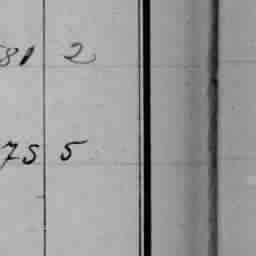 81 2
75 5